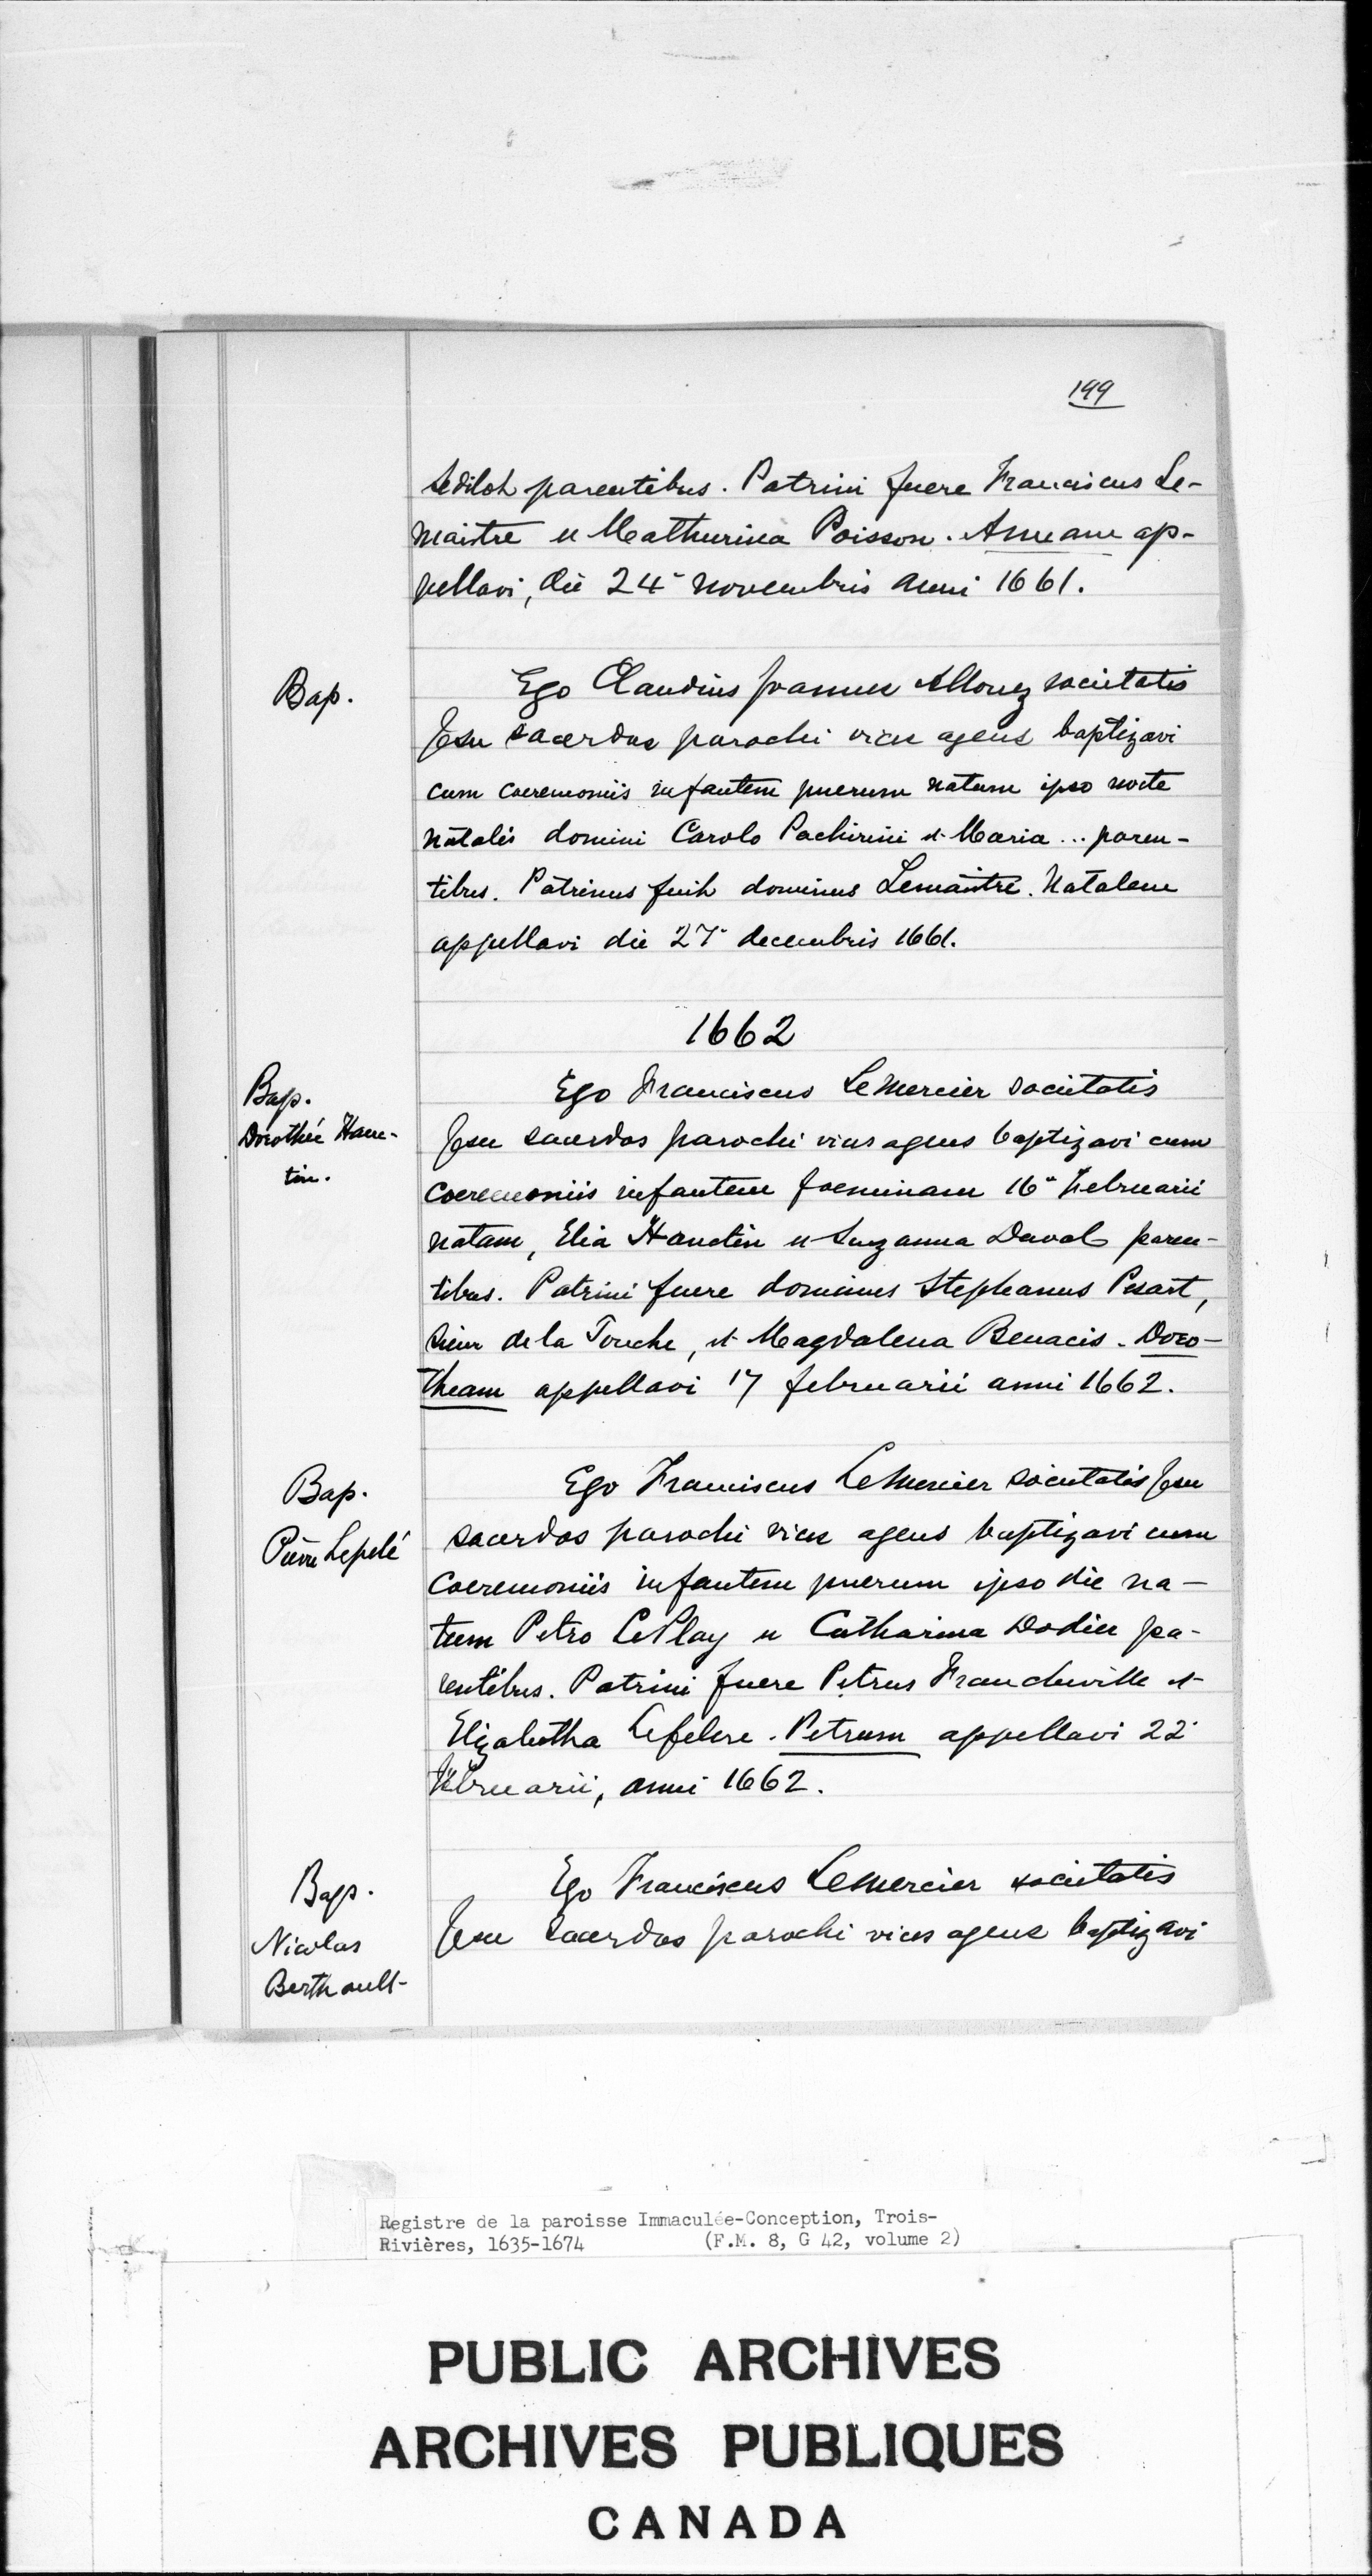 199
Sedilot parentibus. Patrini fuere Franciscus Le-
maitre et Mathurina Poisson. Annam ap-
pellavi, die 24a novembris anni 1661.
Bap.
Ego Claudius Joannes Allouez societatis
Jesu sacerdos parochi vices agens baptizavi
cum coeremoniis infantem puerum natum ipso nocte
natalis domini Carolo Pachirini et Maria ... paren-
tibus. Patrinus fuit dominus Lemaitre. Natalem
appellavi die 27a decembris 1661.
1662
Bap.
Dorothée Hanc-
tin.
Ego Franciscus LeMercier societatis
Jesu sacerdos parochi vices agens baptizavi cum
coeremoniis infantem foeminam 16a februarii
natam, Elia Hanctin et Suzanna Daval paren-
tibus. Patrini fuere dominus Stephanus Pesart,
sieur de la Touche, et Magdalena Benacis. Doro-
theam appellavi 17 februarii anni 1662.
Bap.
Pierre Lepelé
Ego Franciscus LeMercier societatis Jesu
sacerdos parochi vices agens baptizavi cum
coeremoniis infantem puerum ipso die na-
tum Petro LePlay et Catharina Dodier pa-
rentibus. Patrini fuere Petrus Francheville et
Elizabetha Lefebre. Petrum appellavi 22a
februarii, anni 1662.
Bap.
Nicolas
Berthault
Ego Franciscus Lemercier societatis
Jesu sacerdos parochi vices agens baptizavi
Registre de la paroisse Immaculée-Conception, Trois-
Rivières, 1635-1674 (F.M. 8, G 42, volume 2)
PUBLIC ARCHIVES
ARCHIVES PUBLIQUES
CANADA